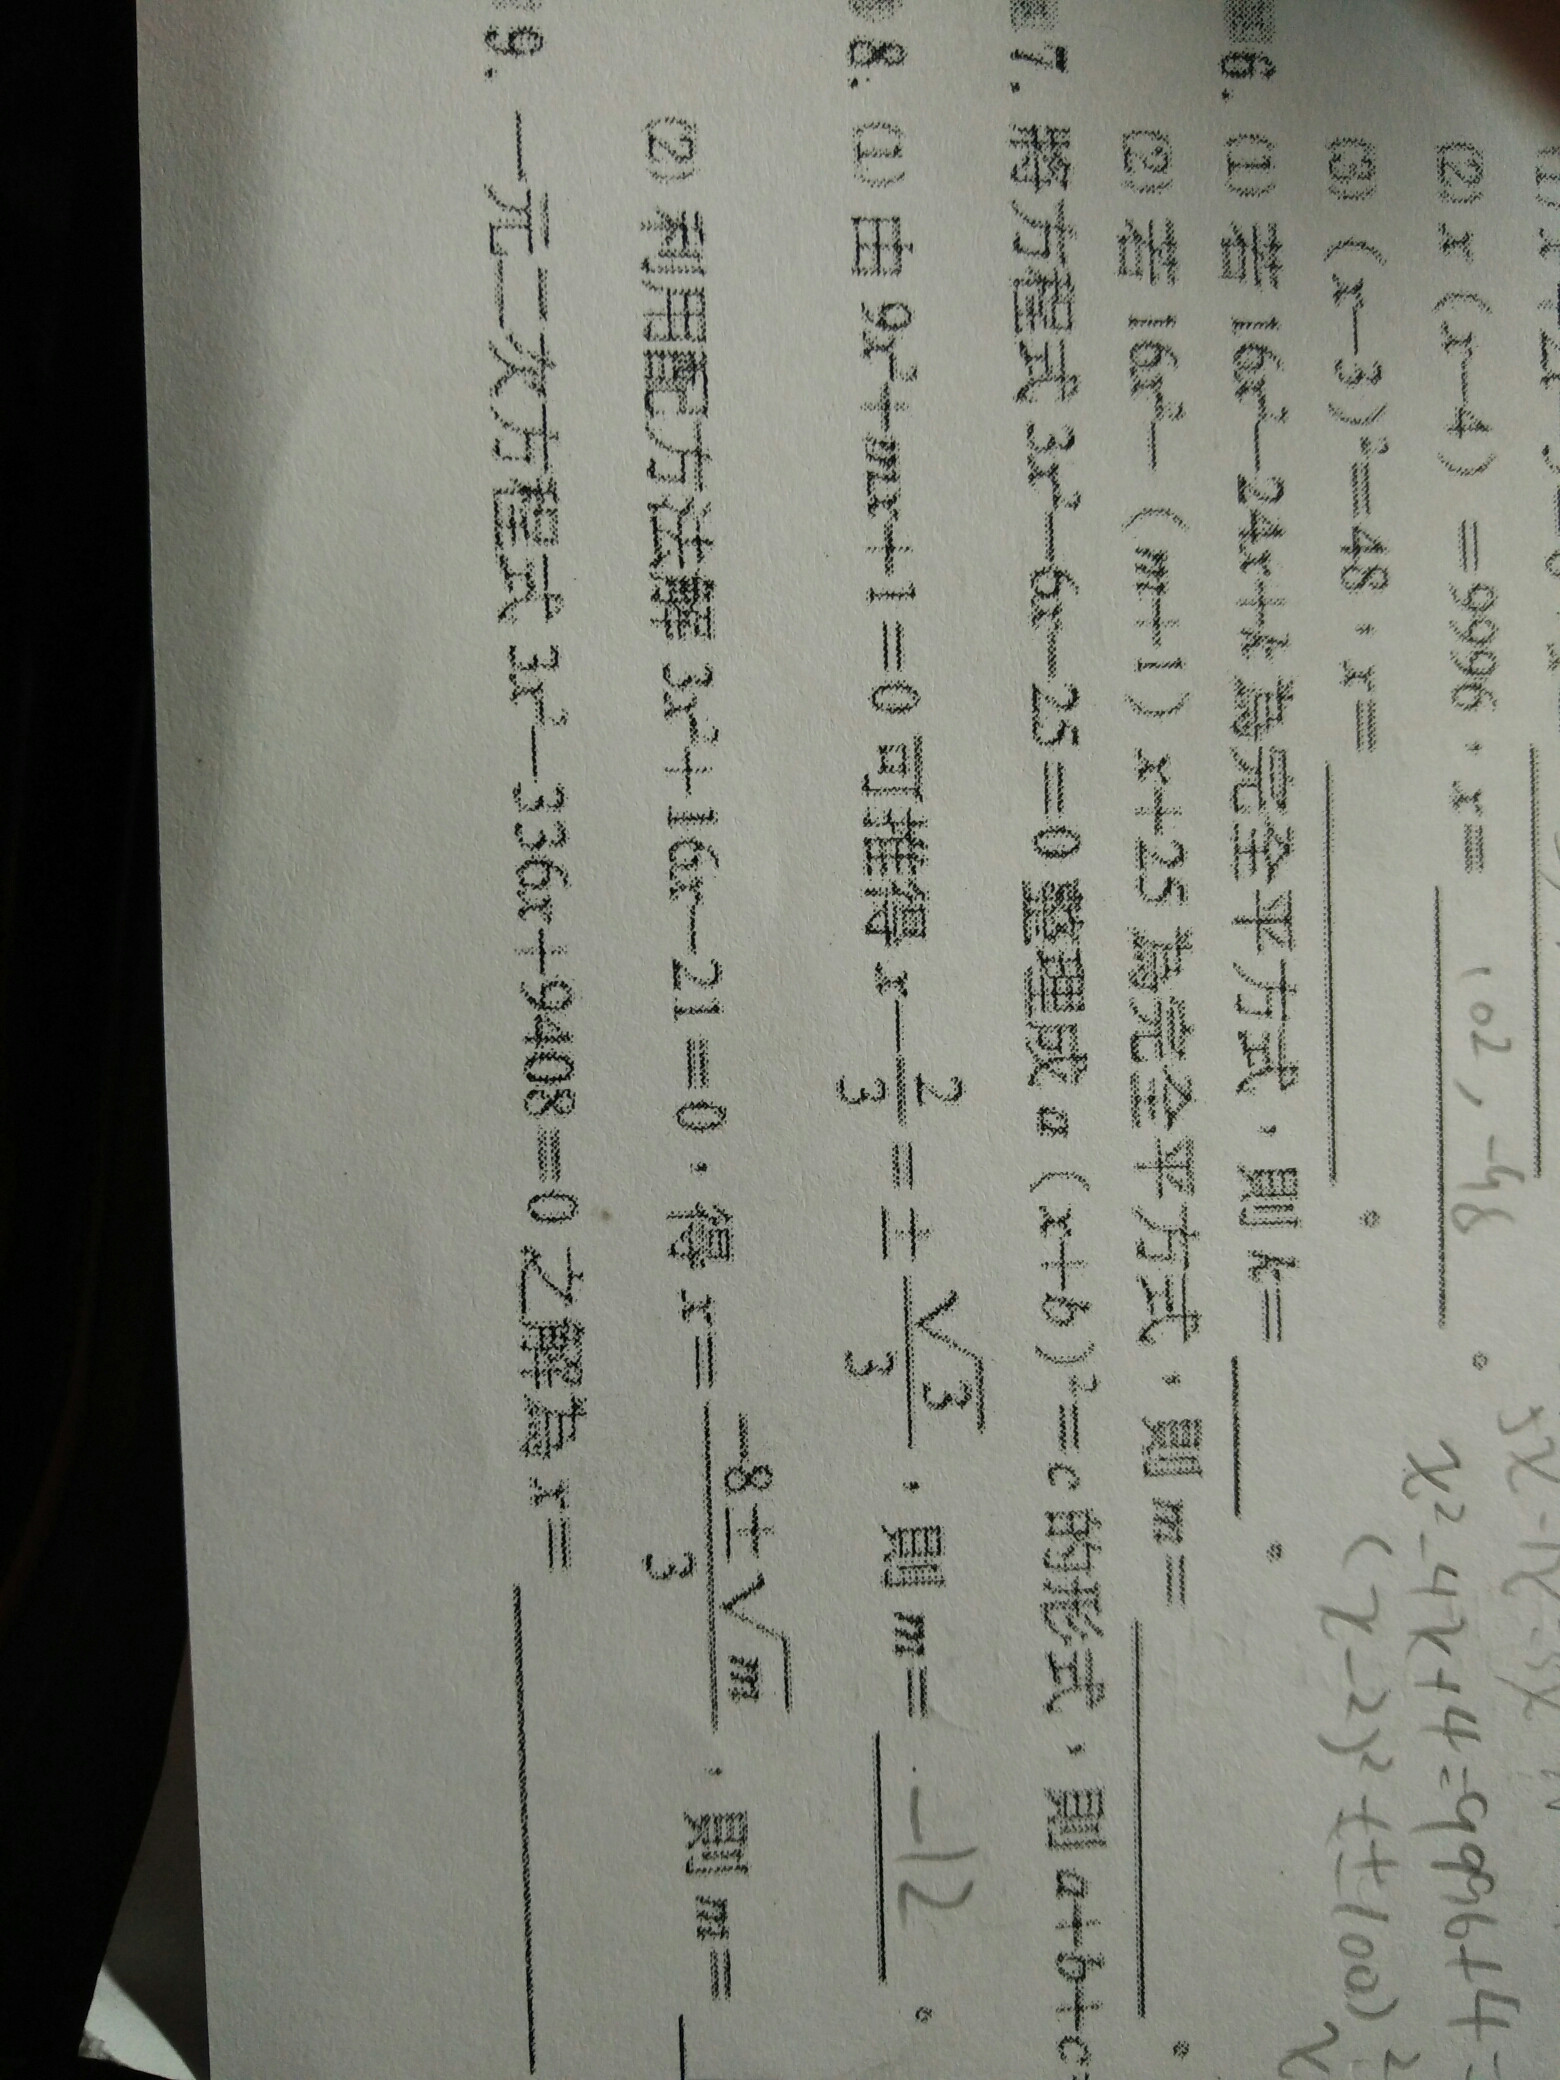 (2) x(x-4)=9996，x= 102, -98 。
(3) (x-3)²=48，x= 。
6. (1) 若 16x²-24x+k 為完全平方式，則 k= 。
(2) 若 16x²-(m+1)x+25 為完全平方式，則 m= 。
7. 將方程式 3x²-6x-25=0 整理成 a(x+b)²=c 的形式，則 a+b+c=
8. (1) 由 9x²+mx+1=0 可推得 x-2/3=±√3/3，則 m= -12 。
(2) 利用配方法解 3x²+16x-21=0，得 x=(-8±√m)/3，則 m=
9. 一元二次方程式 3x²-336x+9408=0 之解為 x=
x²-4x+4=9996+4=
(x-2)²